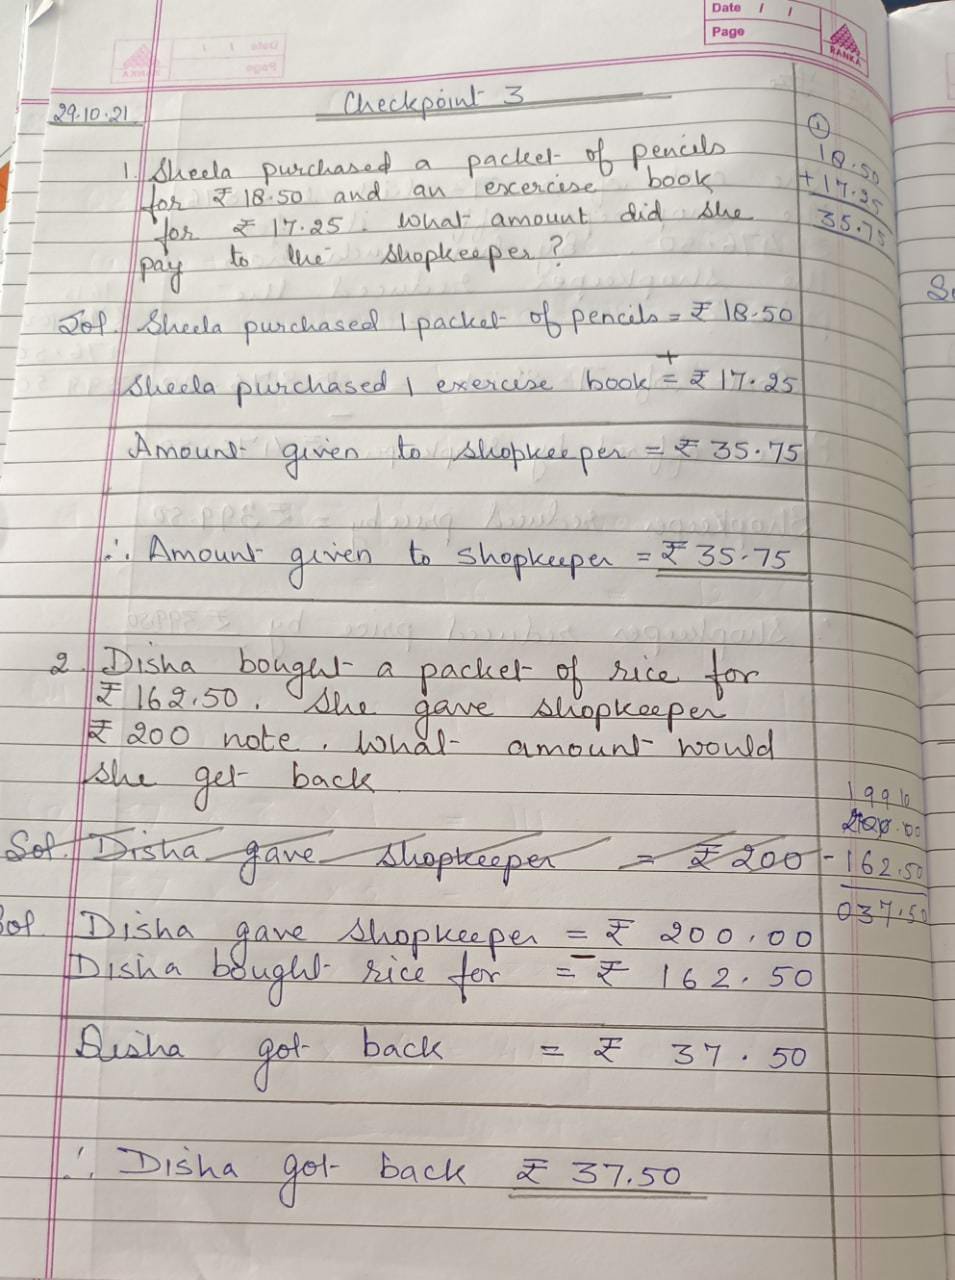 Date / /
Page
RANKA
29.10.21
Checkpoint 3
1. Sheela purchased a packet of pencils
for ₹ 18.50 and an excercise book
for ₹ 17.25. What amount did she
pay to the shopkeeper?
①
18.50
+ 17.25
35.75
Sol. Sheela purchased 1 packet of pencils = ₹ 18.50
+
Sheela purchased 1 exercise book = ₹ 17.25
Amount given to shopkeeper = ₹ 35.75
∴ Amount given to shopkeeper = ₹ 35.75
2. Disha bought a packet of rice for
₹ 162.50. She gave shopkeeper
₹ 200 note. What amount would
she get back
199 10
200.00
- 162.50
037.50
Sol. Disha gave shopkeeper = ₹ 200
Sol. Disha gave shopkeeper = ₹ 200.00
Disha bought rice for = - ₹ 162.50
Disha got back = ₹ 37.50
∴ Disha got back ₹ 37.50